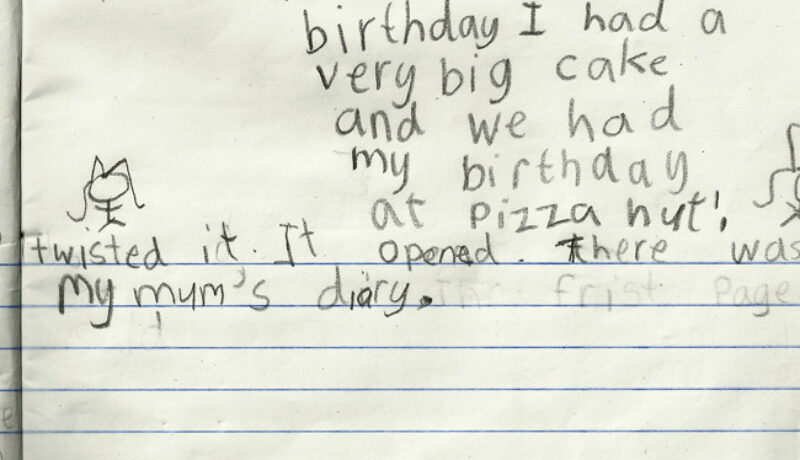 birthday I had a
very big cake
and we had
my birthday
at pizza hut!
twisted it. It opened. there was
my mum's diary. The frist page